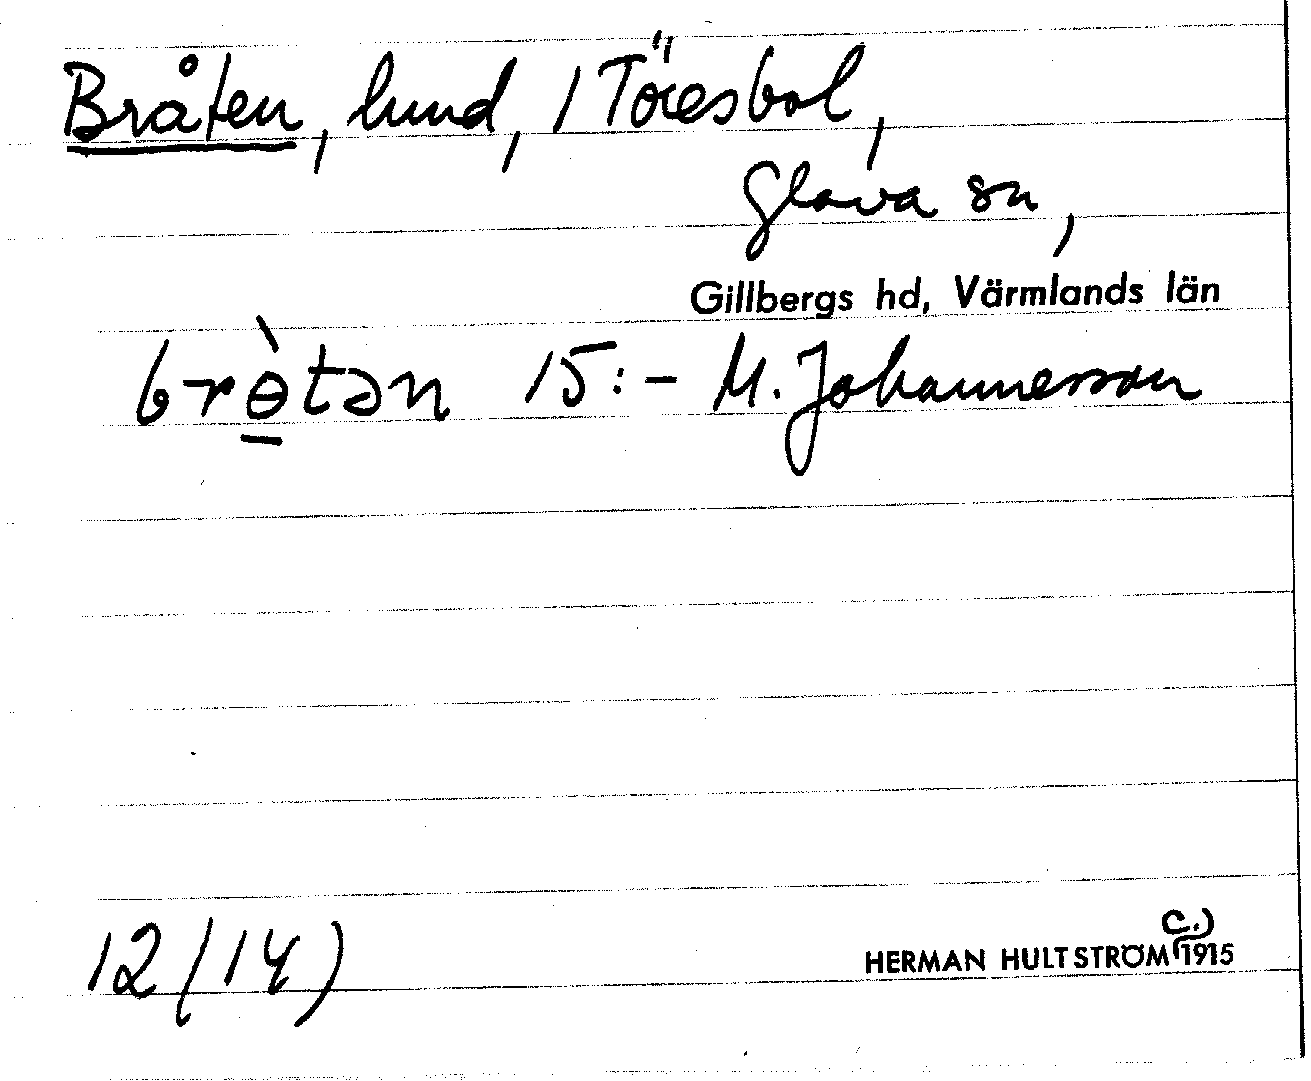 Bråten, lund, 1 Töresbol,
Glava sn,
Gillbergs hd, Värmlands län
brɵ̀tən 15:- M. Johannesson
12(14)
HERMAN HULTSTRÖM (C.) 1915